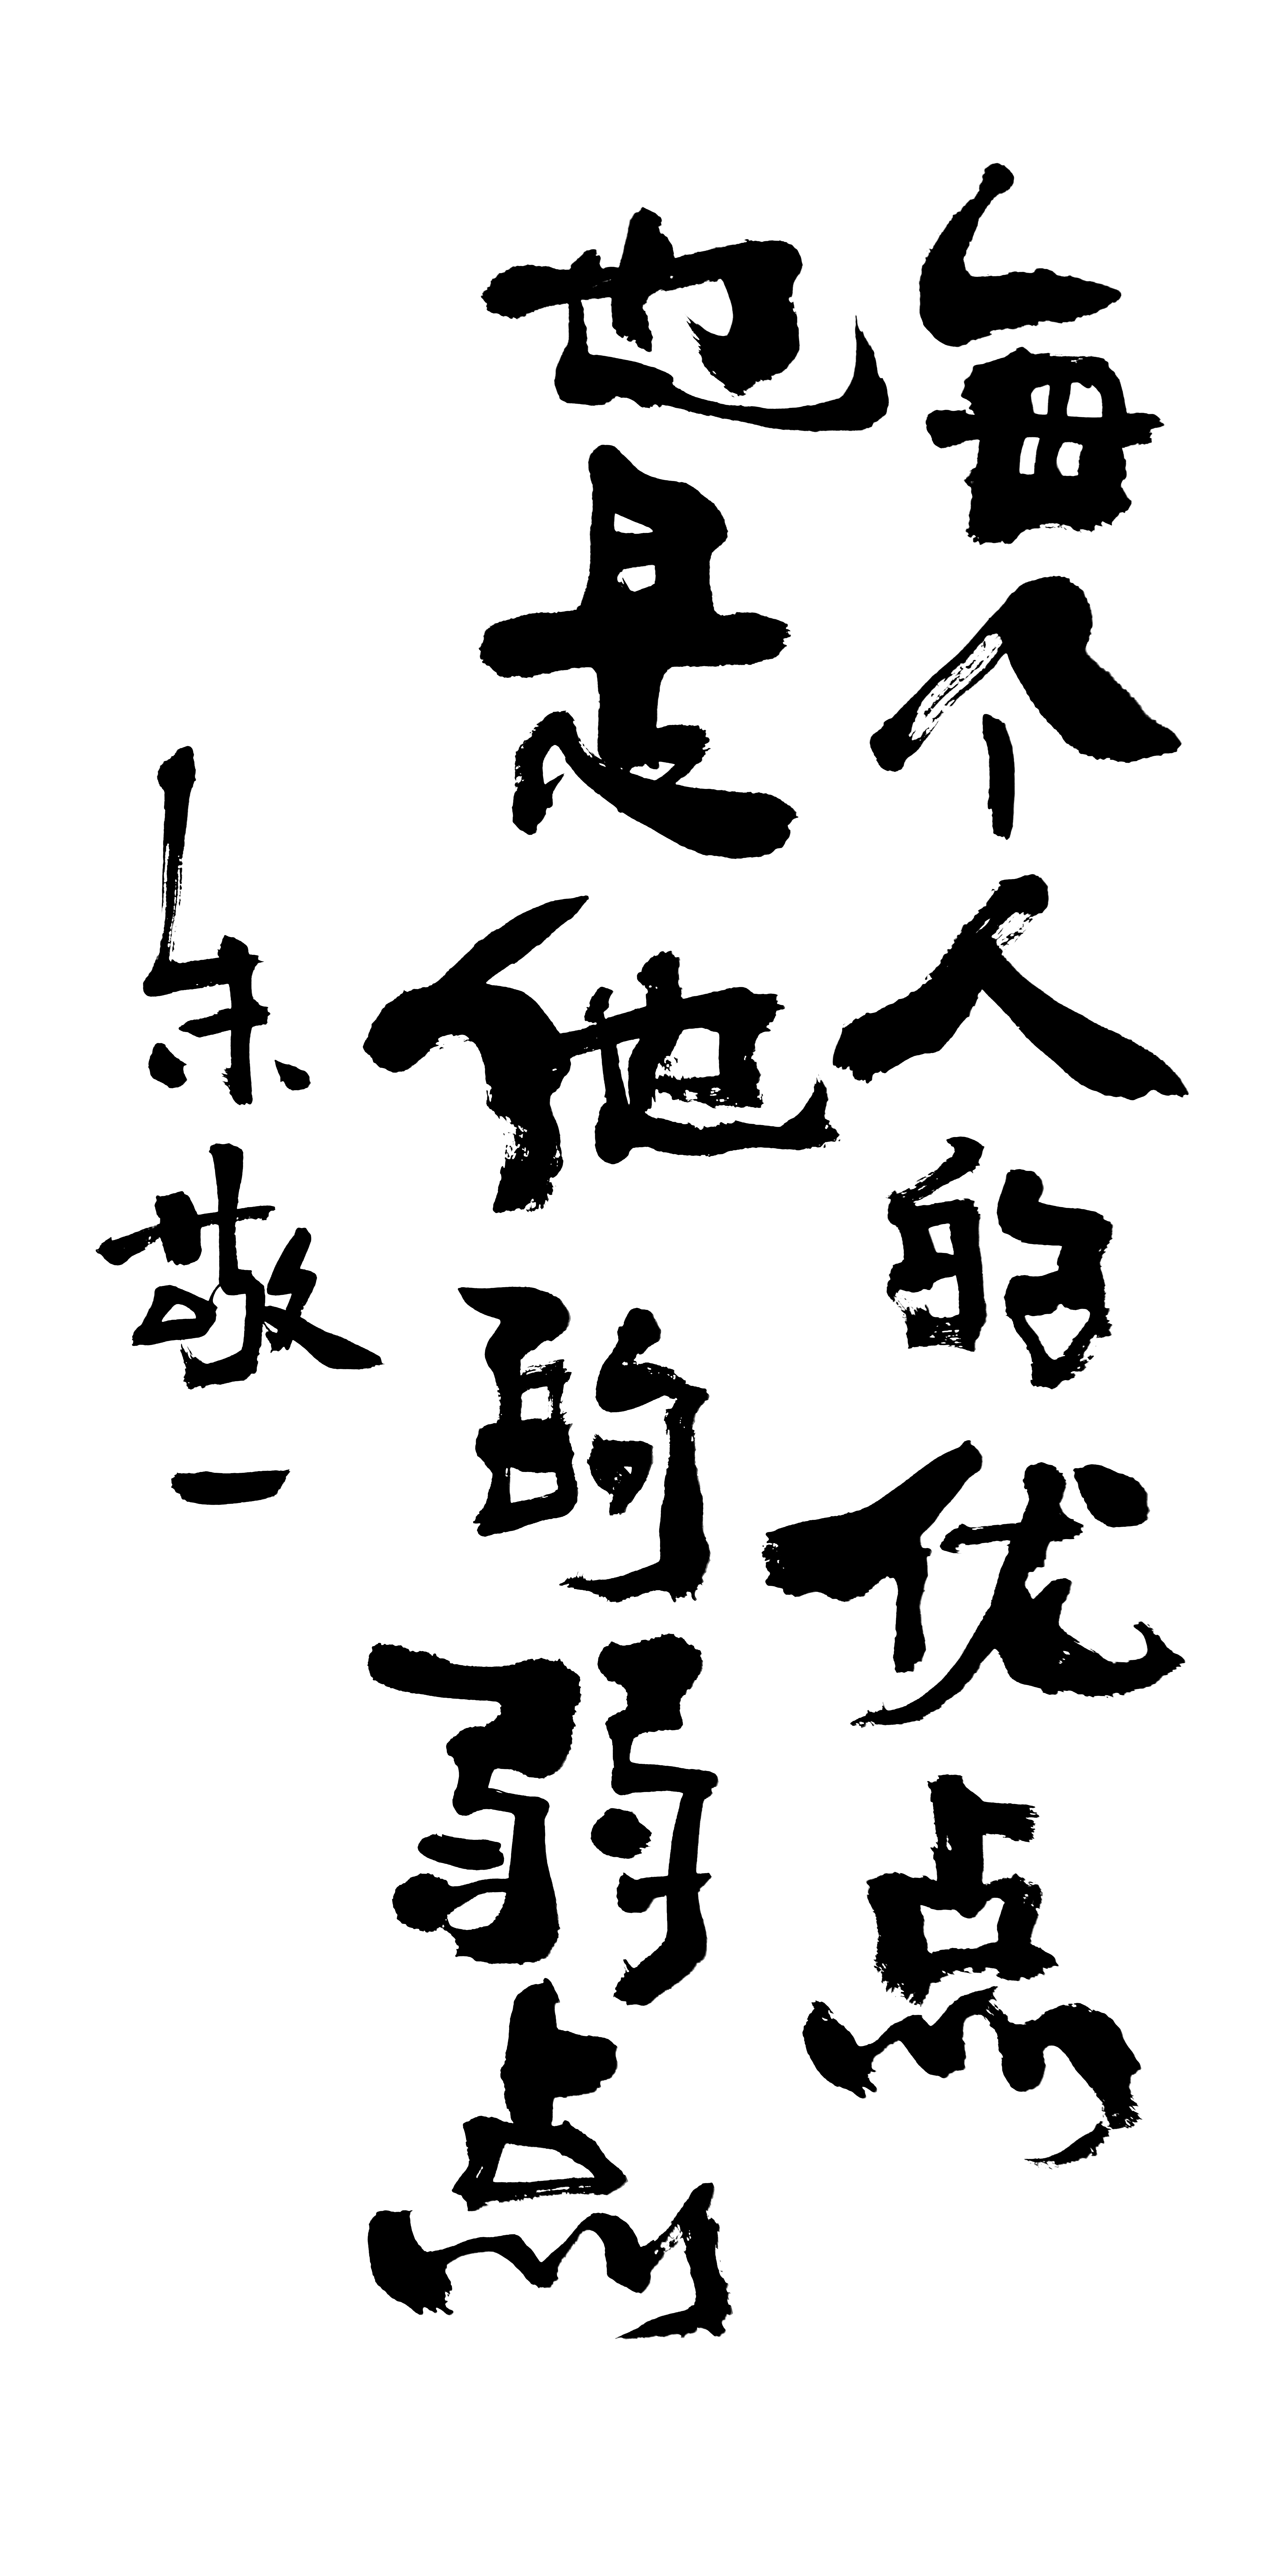 每个人的优点
也是他的弱点
朱敬一